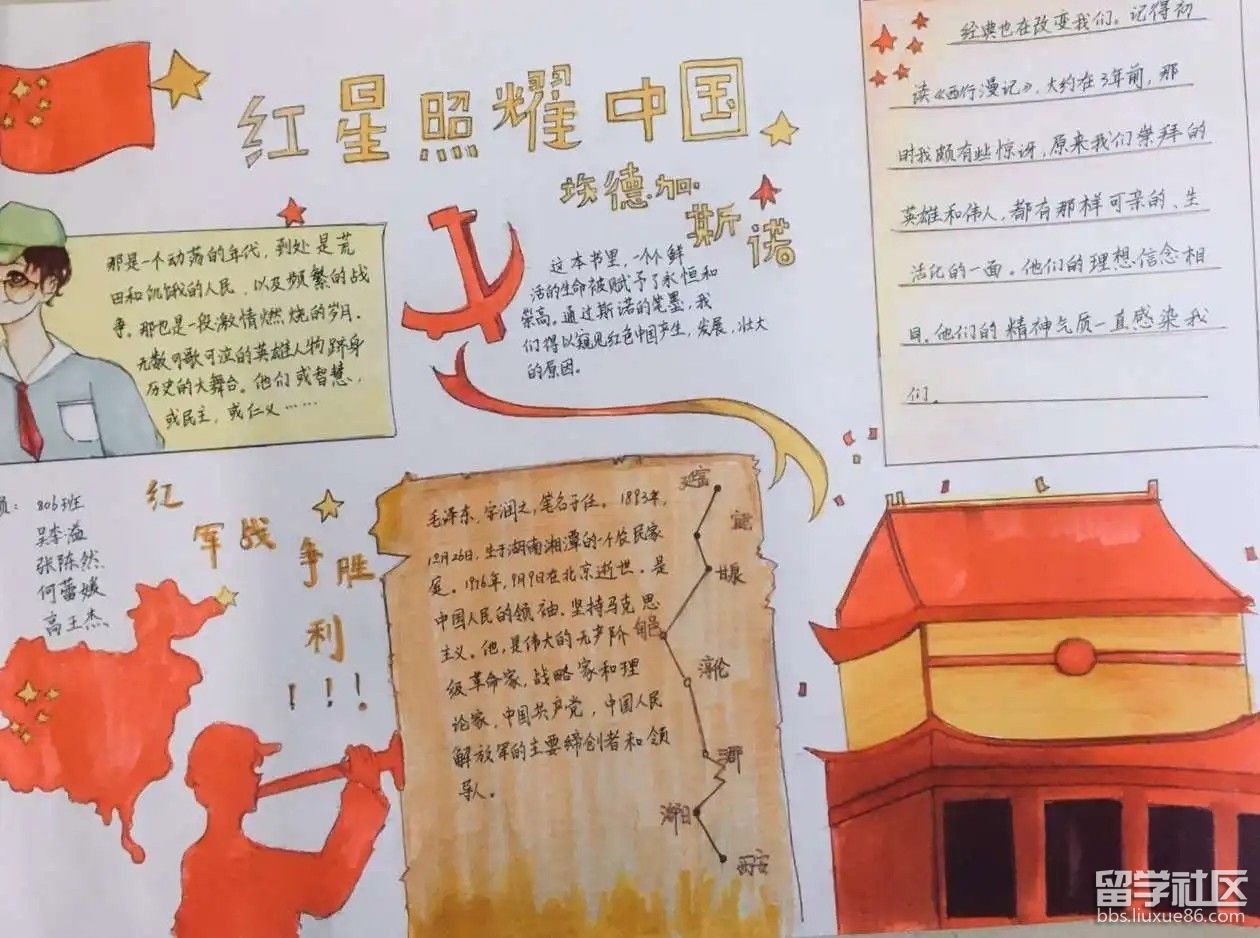 红星照耀中国
埃德加·
斯诺
那是一个动荡的年代，到处是荒
田和饥饿的人民，以及频繁的战
争。那也是一段激情燃烧的岁月.
无数可歌可泣的英雄人物跻身
历史的大舞台。他们或智慧，
或民主，或仁义……
这本书里，一个个鲜
活的生命被赋予了永恒和
崇高。通过斯诺的笔墨，我
们得以窥见红色中国产生，发展，壮大
的原因。
经典也在改变我们。记得初
读《西行漫记》，大约在3年前，那
时我颇有些惊讶，原来我们崇拜的
英雄和伟人，都有那样可亲的、生
活化的一面。他们的理想信念相
他们的精神气质一直感染我
们。
员：806班
张陈然
高王杰
红
军战
争胜
利
！！！
毛泽东，字润之，笔名子任。1893年，
12月26日，生于湖南湘潭的一个农民家
庭。1976年，9月9日在北京逝世。是
中国人民的领袖，坚持马克思
主义。他，是伟大的无产阶
级革命家，战略家和理
论家，中国共产党，中国人民
解放军的主要缔创者和领
导人。
西安
留学社区
bbs.liuxue86.com